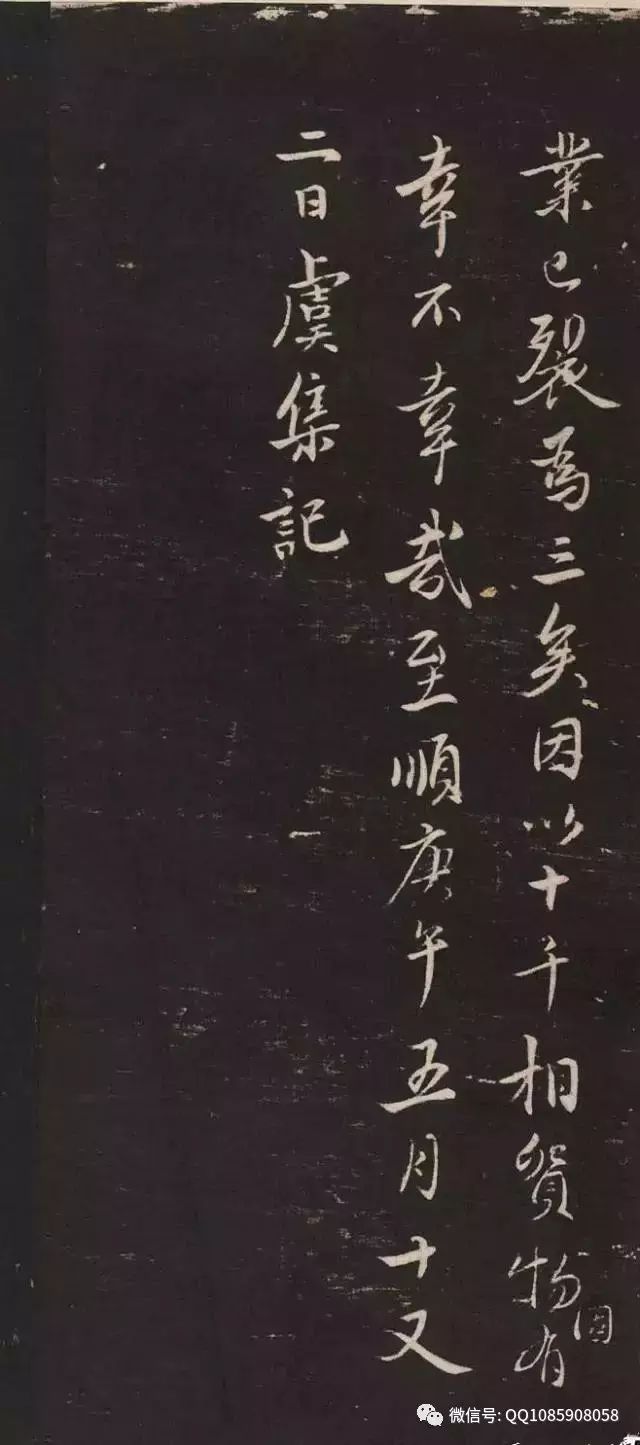 業已裂為三矣因以十千相貿物固有
幸不幸哉至順庚午五月十又
二日虞集記
微信号: QQ1085908058